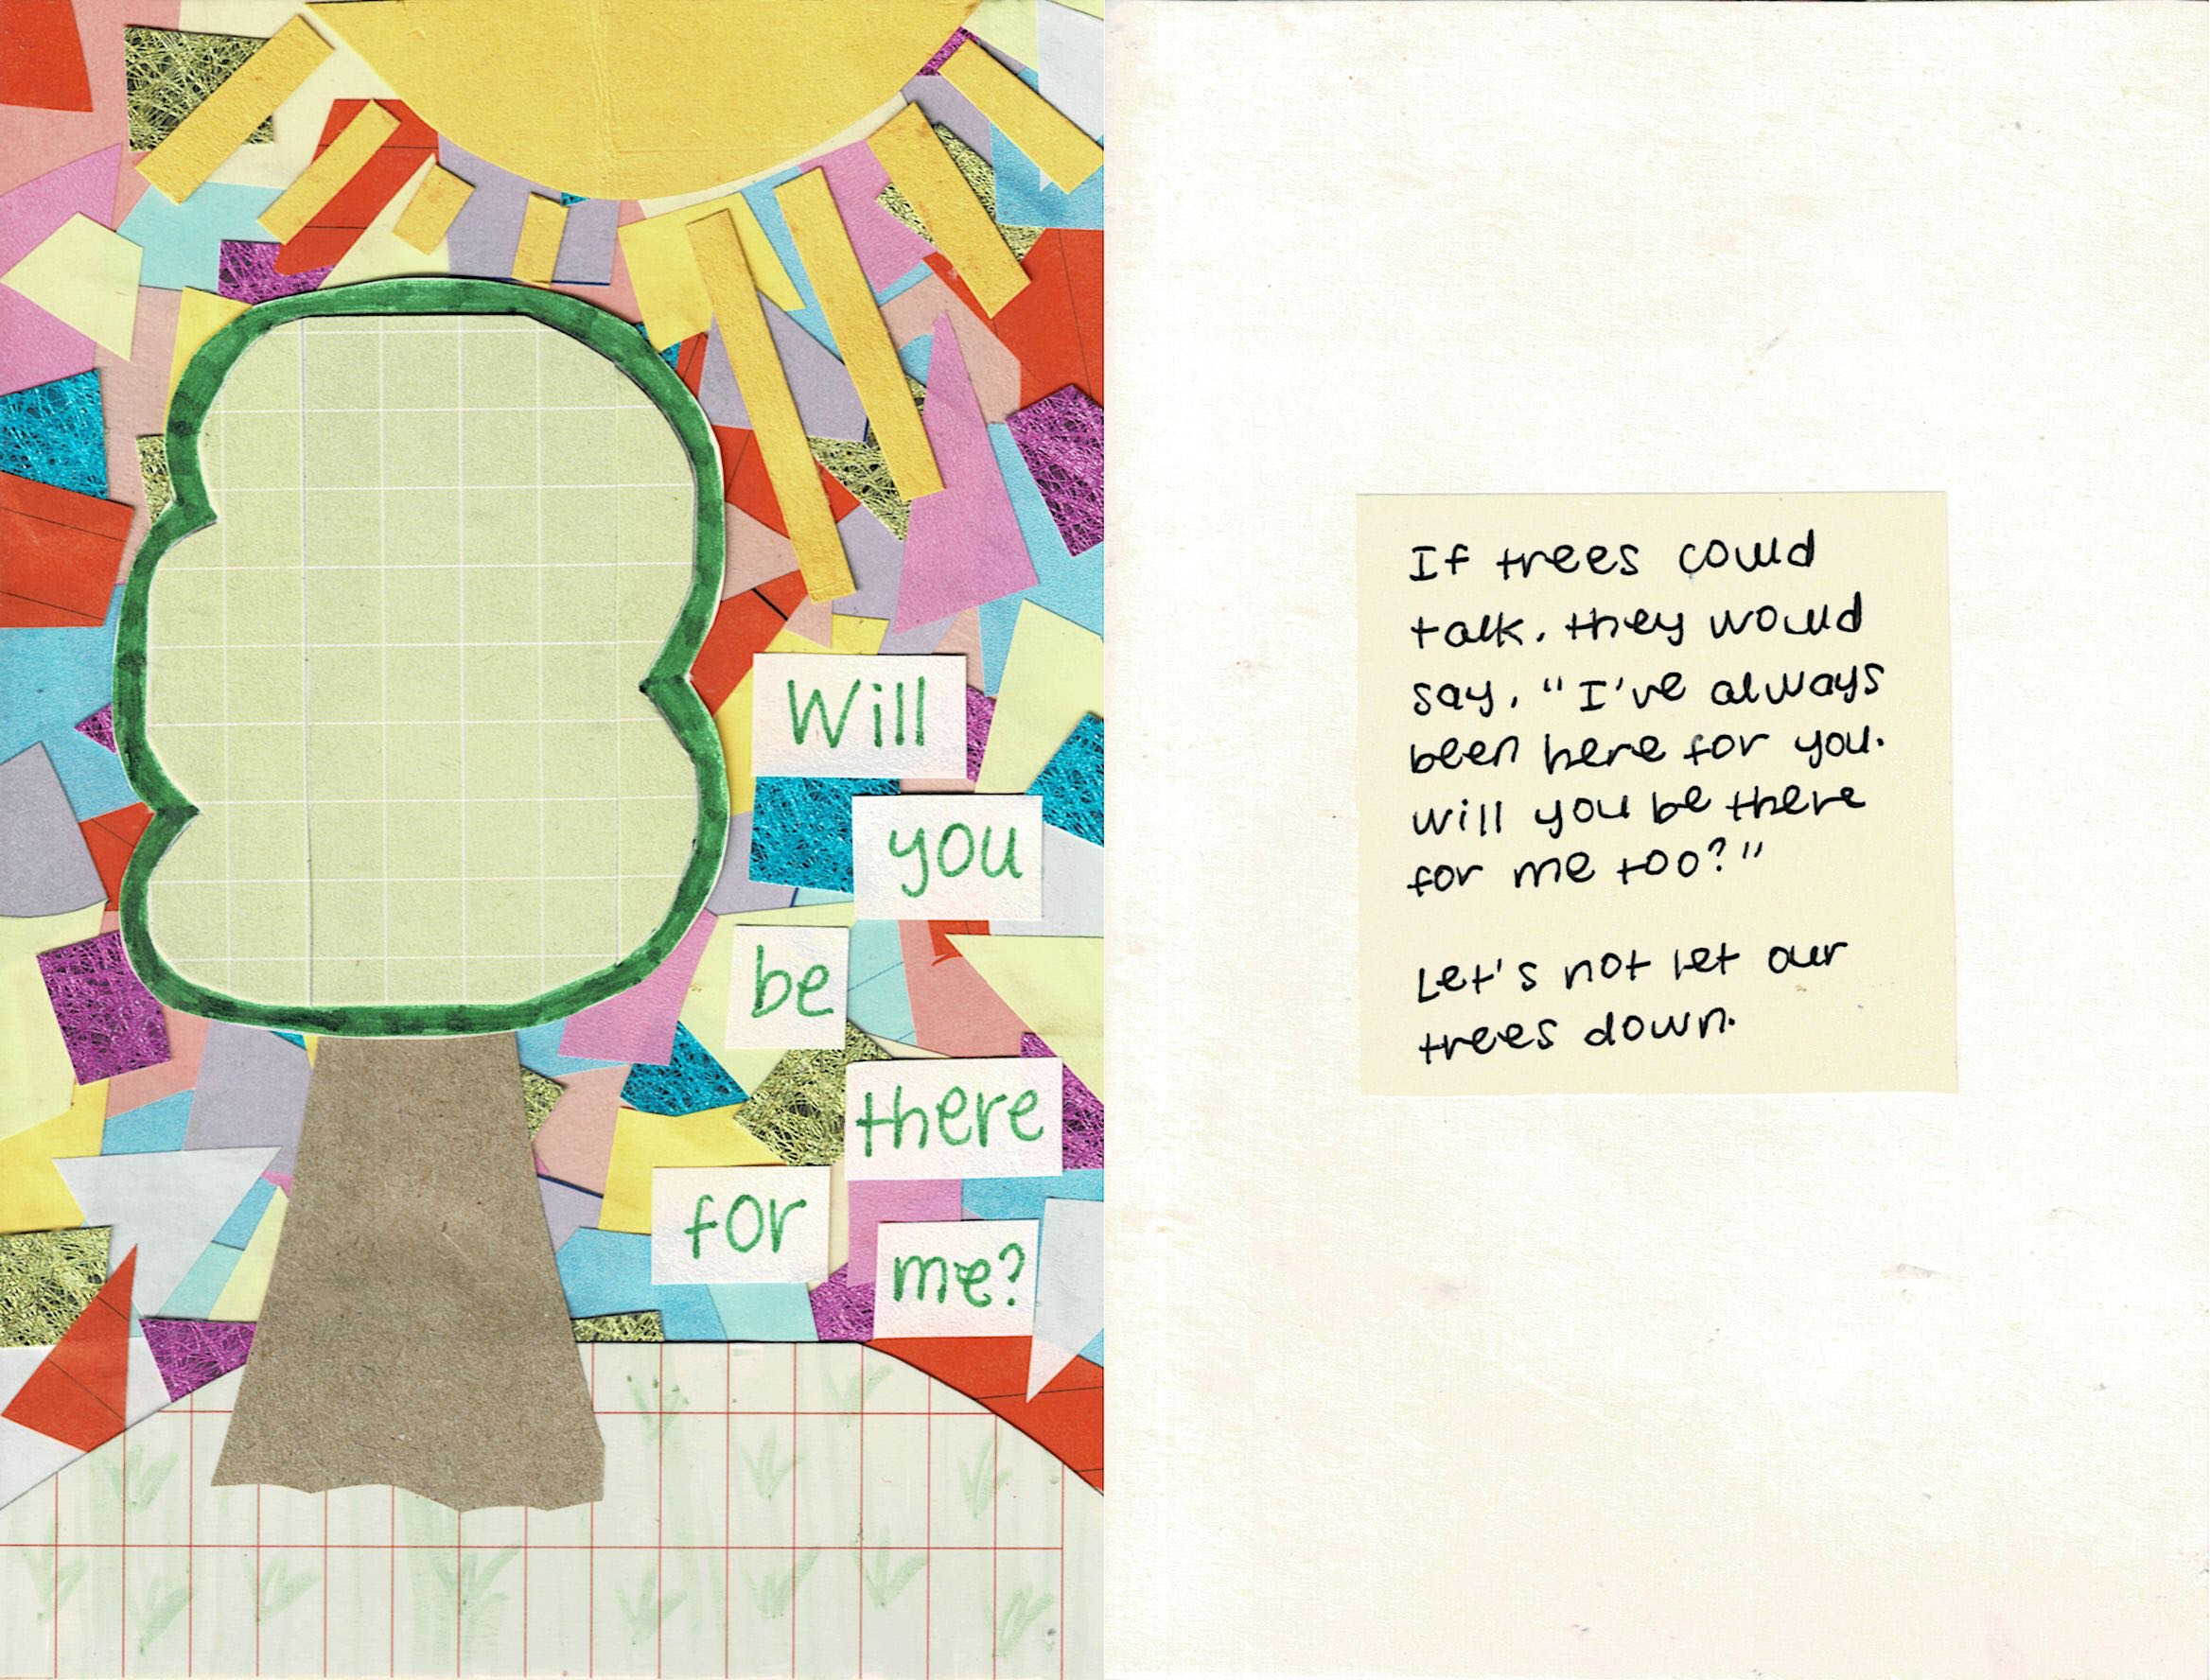 Will
you
be
there
for
me?
If trees could
talk, they would
say, "I've always
been here for you.
will you be there
for me too?"
Let's not let our
trees down.